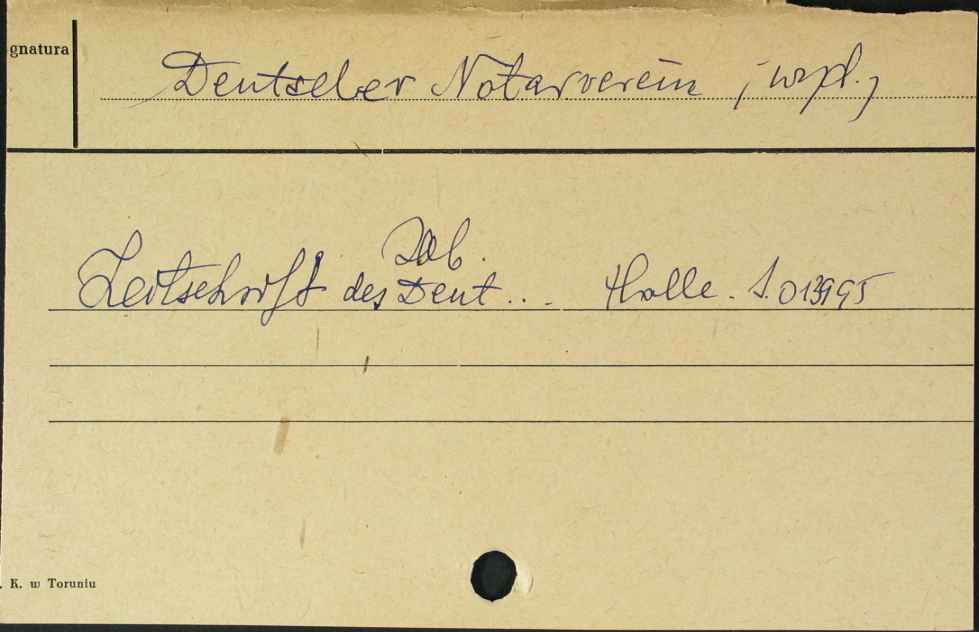 gnatura
Deutscher Notarverein /wyd./
Zob.
Zeitschrift des Deut... Halle. S.013995
. K. w Toruniu